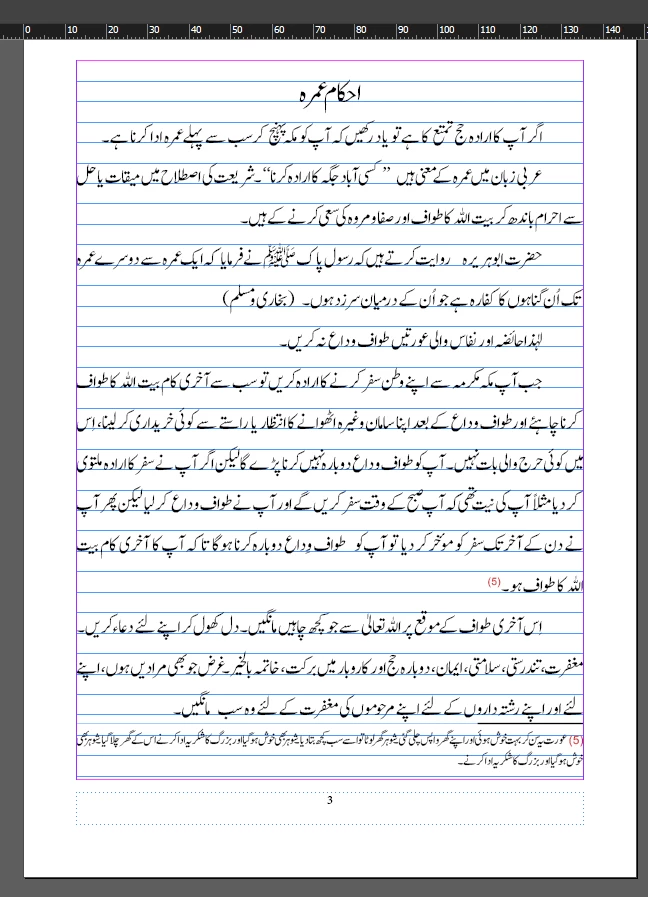 0 10 20 30 40 50 60 70 80 90 100 110 120 130 140
احکام عمرہ
اگر آپ کا ارادہ حج تمتع کا ہے تو یاد رکھیں کہ آپ کو مکہ پہنچ کر سب سے پہلے عمرہ ادا کرنا ہے۔
عربی زبان میں عمرہ کے معنی ہیں ”کسی آباد جگہ کا ارادہ کرنا“۔ شریعت کی اصطلاح میں میقات یا حل
سے احرام باندھ کر بیت اللہ کا طواف اور صفا و مروہ کی سعی کرنے کے ہیں۔
حضرت ابوہریرہ روایت کرتے ہیں کہ رسول پاک ﷺ نے فرمایا کہ ایک عمرہ سے دوسرے عمرہ
تک اُن گناہوں کا کفارہ ہے جو اُن کے درمیان سرزد ہوں۔ (بخاری و مسلم)
لہٰذا حائضہ اور نفاس والی عورتیں طواف وداع نہ کریں۔
جب آپ مکہ مکرمہ سے اپنے وطن سفر کرنے کا ارادہ کریں تو سب سے آخری کام بیت اللہ کا طواف
کرنا چاہئے اور طواف وداع کے بعد اپنا سامان وغیرہ اٹھوانے کا انتظار یا راستے سے کوئی خریداری کر لینا، اس
میں کوئی حرج والی بات نہیں۔ آپ کو طواف وداع دوبارہ نہیں کرنا پڑے گا لیکن اگر آپ نے سفر کا ارادہ ملتوی
کر دیا مثلاً آپ کی نیت تھی کہ آپ صبح کے وقت سفر کریں گے اور آپ نے طواف وداع کر لیا لیکن پھر آپ
نے دن کے آخر تک سفر کو موخر کر دیا تو آپ کو طواف وداع دوبارہ کرنا ہوگا تاکہ آپ کا آخری کام بیت
اللہ کا طواف ہو۔(5)
اس آخری طواف کے موقع پر اللہ تعالیٰ سے جو کچھ چاہیں مانگیں۔ دل کھول کر اپنے لئے دعاء کریں۔
مغفرت، تندرستی، سلامتی، ایمان، دوبارہ حج اور کاروبار میں برکت، خاتمہ بالخیر۔ غرض جو بھی مرادیں ہوں، اپنے
لئے اور اپنے رشتہ داروں کے لئے اپنے مرحوموں کی مغفرت کے لئے وہ سب مانگیں۔
(5) عورت یہ سن کر بہت خوش ہوئی اور اپنے گھر واپس چلی گئی شوہر گھر لوٹا تو اسے سب کچھ بتا دیا شوہر بھی خوش ہو گیا اور بزرگ کا شکریہ ادا کرنے اس کے گھر چلا گیا شوہر بھی
خوش ہو گیا اور بزرگ کا شکریہ ادا کرنے۔
3